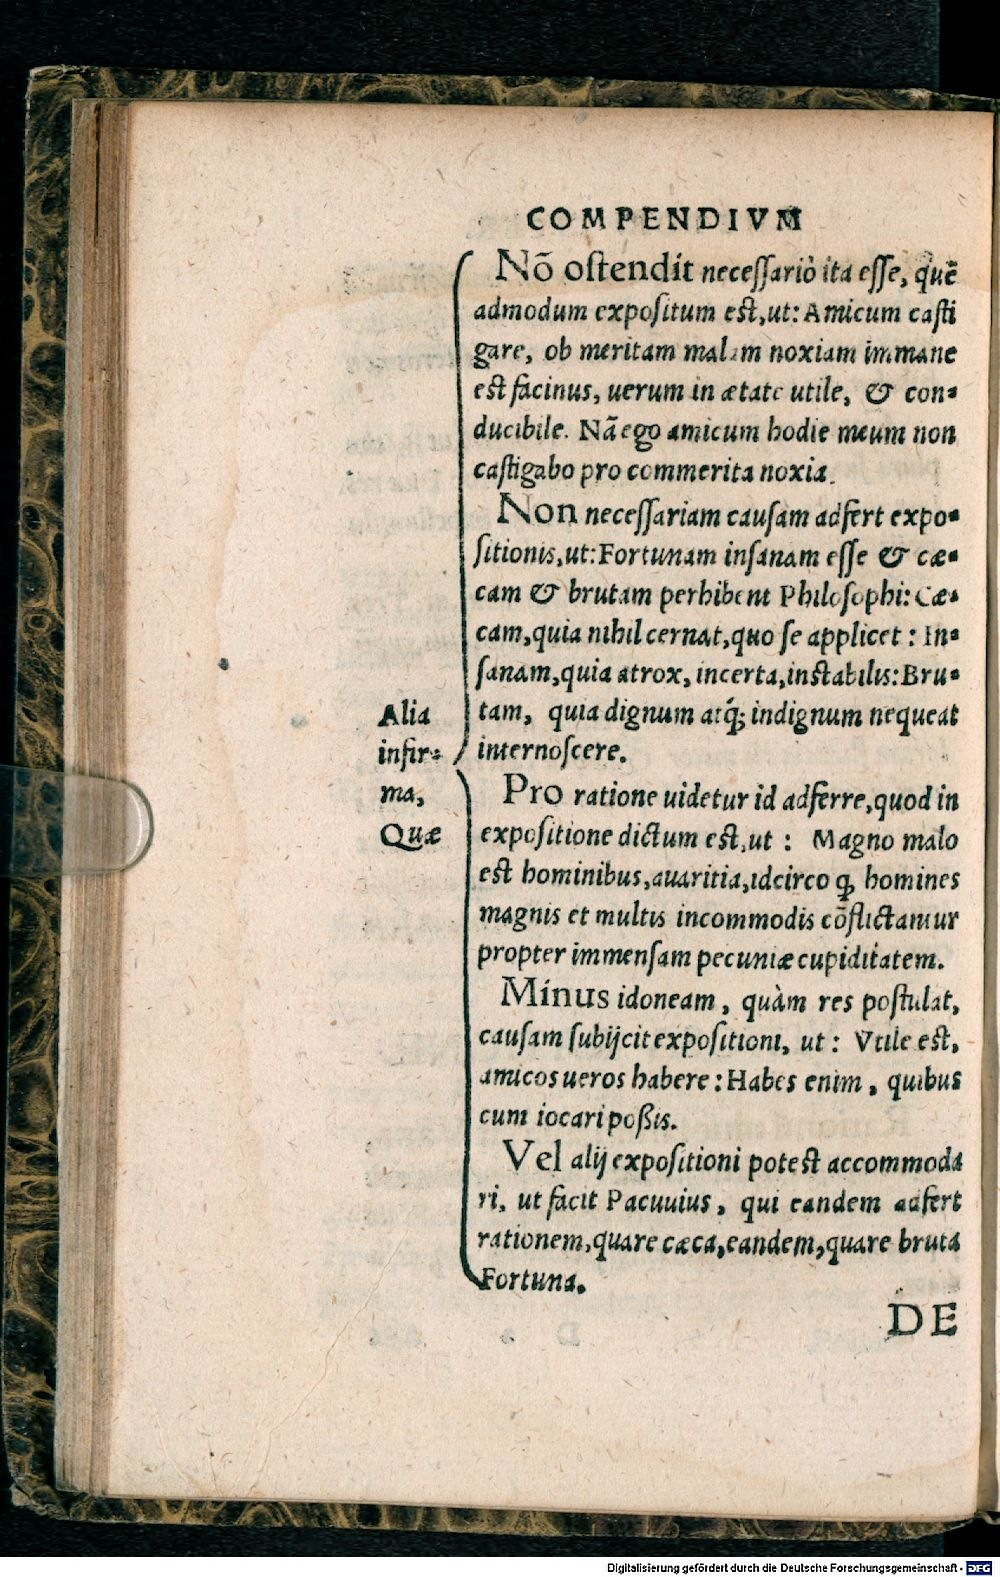 COMPENDIVM
Nõ ostendit necessariò ita esse, quẽ
admodum expositum est, ut: Amicum casti
gare, ob meritam malam noxiam immane
est facinus, uerum in ætate utile, & con=
ducibile. Nã ego amicum hodie meum non
castigabo pro commerita noxia.
Non necessariam causam adfert expo=
sitionis, ut: Fortunam insanam esse & cæ=
cam & brutam perhibent Philosophi: Cæ=
cam, quia nihil cernat, quo se applicet: In=
sanam, quia atrox, incerta, instabilis: Bru=
tam, quia dignum atq́; indignum nequeat
internoscere.
Alia
infir=
ma,
Quæ
Pro ratione uidetur id adferre, quod in
expositione dictum est, ut: Magno malo
est hominibus, auaritia, idcirco ꝙ homines
magnis et multis incommodis cõflictantur
propter immensam pecuniæ cupiditatem.
Minus idoneam, quàm res postulat,
causam subijcit expositioni, ut: Vtile est,
amicos ueros habere: Habes enim, quibus
cum iocari poßis.
Vel alij expositioni potest accommoda
ri, ut facit Pacuuius, qui eandem adfert
rationem, quare cæca, eandem, quare bruta
Fortuna.
DE
Digitalisierung gefördert durch die Deutsche Forschungsgemeinschaft - DFG